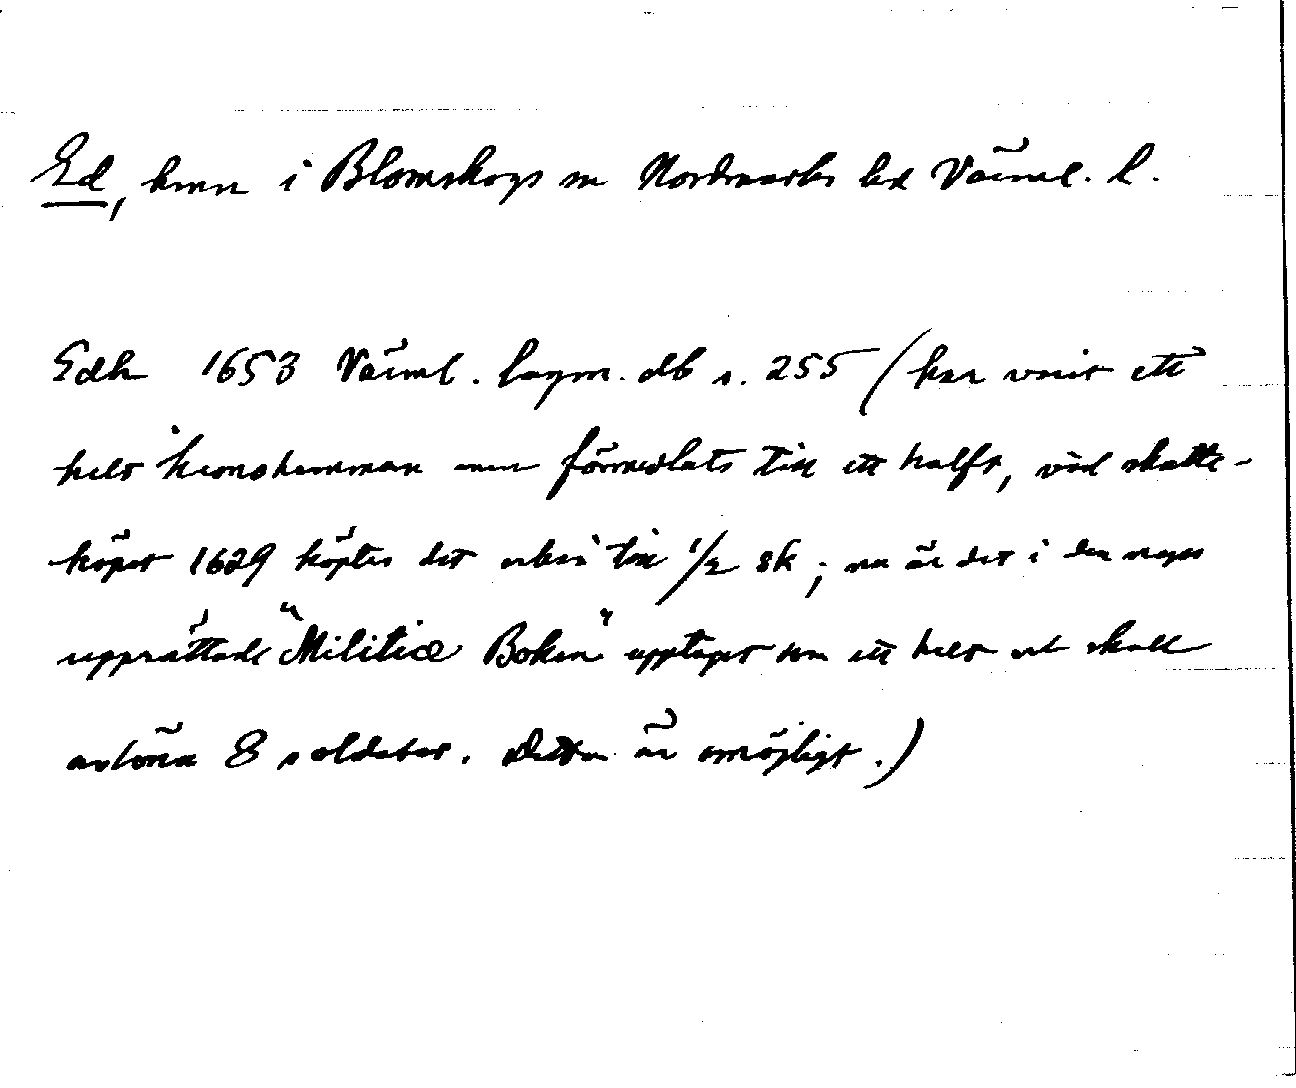 Ed, hmn i Blomskogs sn Nordmarks hd Värml. l.
Edh 1653 Värml. lagm. db s. 255 (har varit ett
helt kronohemman men förmedlats till ett halft, vid skatte-
köpet 1629 köptes det också till 1/2 sk; nu är det i den nya
upprättade "Militiæ Boken" upptaget som ett helt och skall
avlöna 8 soldater. Detta är omöjligt.)